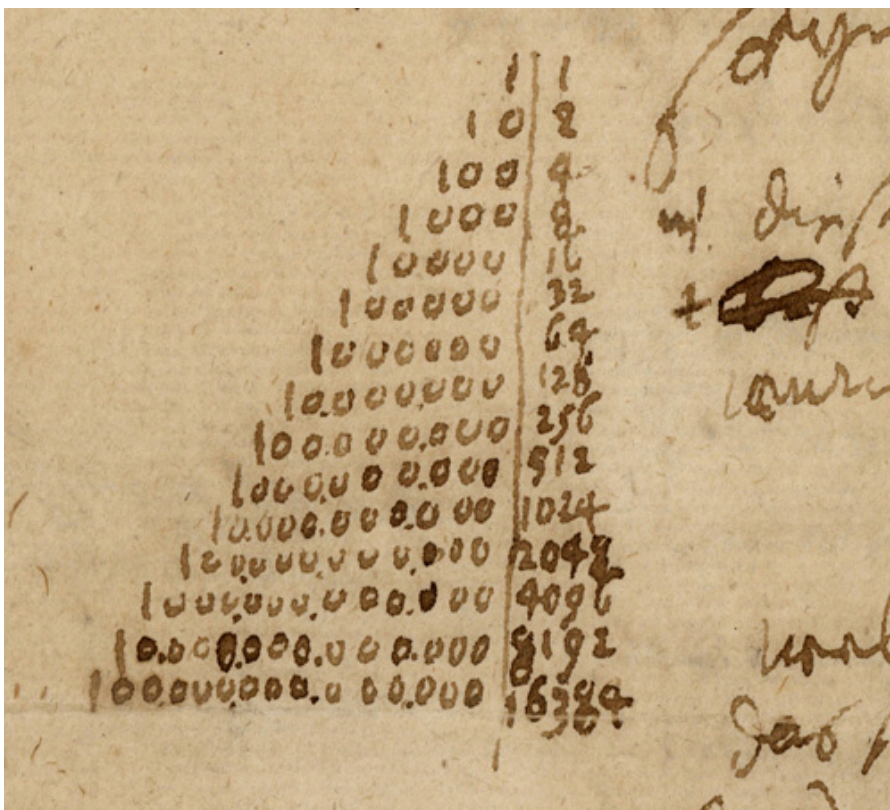 1 | 1
10 | 2
100 | 4
1000 | 8
10000 | 16
100000 | 32
1000000 | 64
10.000000 | 128
100.000.000 | 256
1000.000.000 | 512
10.000.000.000 | 1024
100.000.000.000 | 2048
1000.000.000.000 | 4096
10.000.000.000.000 | 8192
100.000.000.000.000 | 16384
das